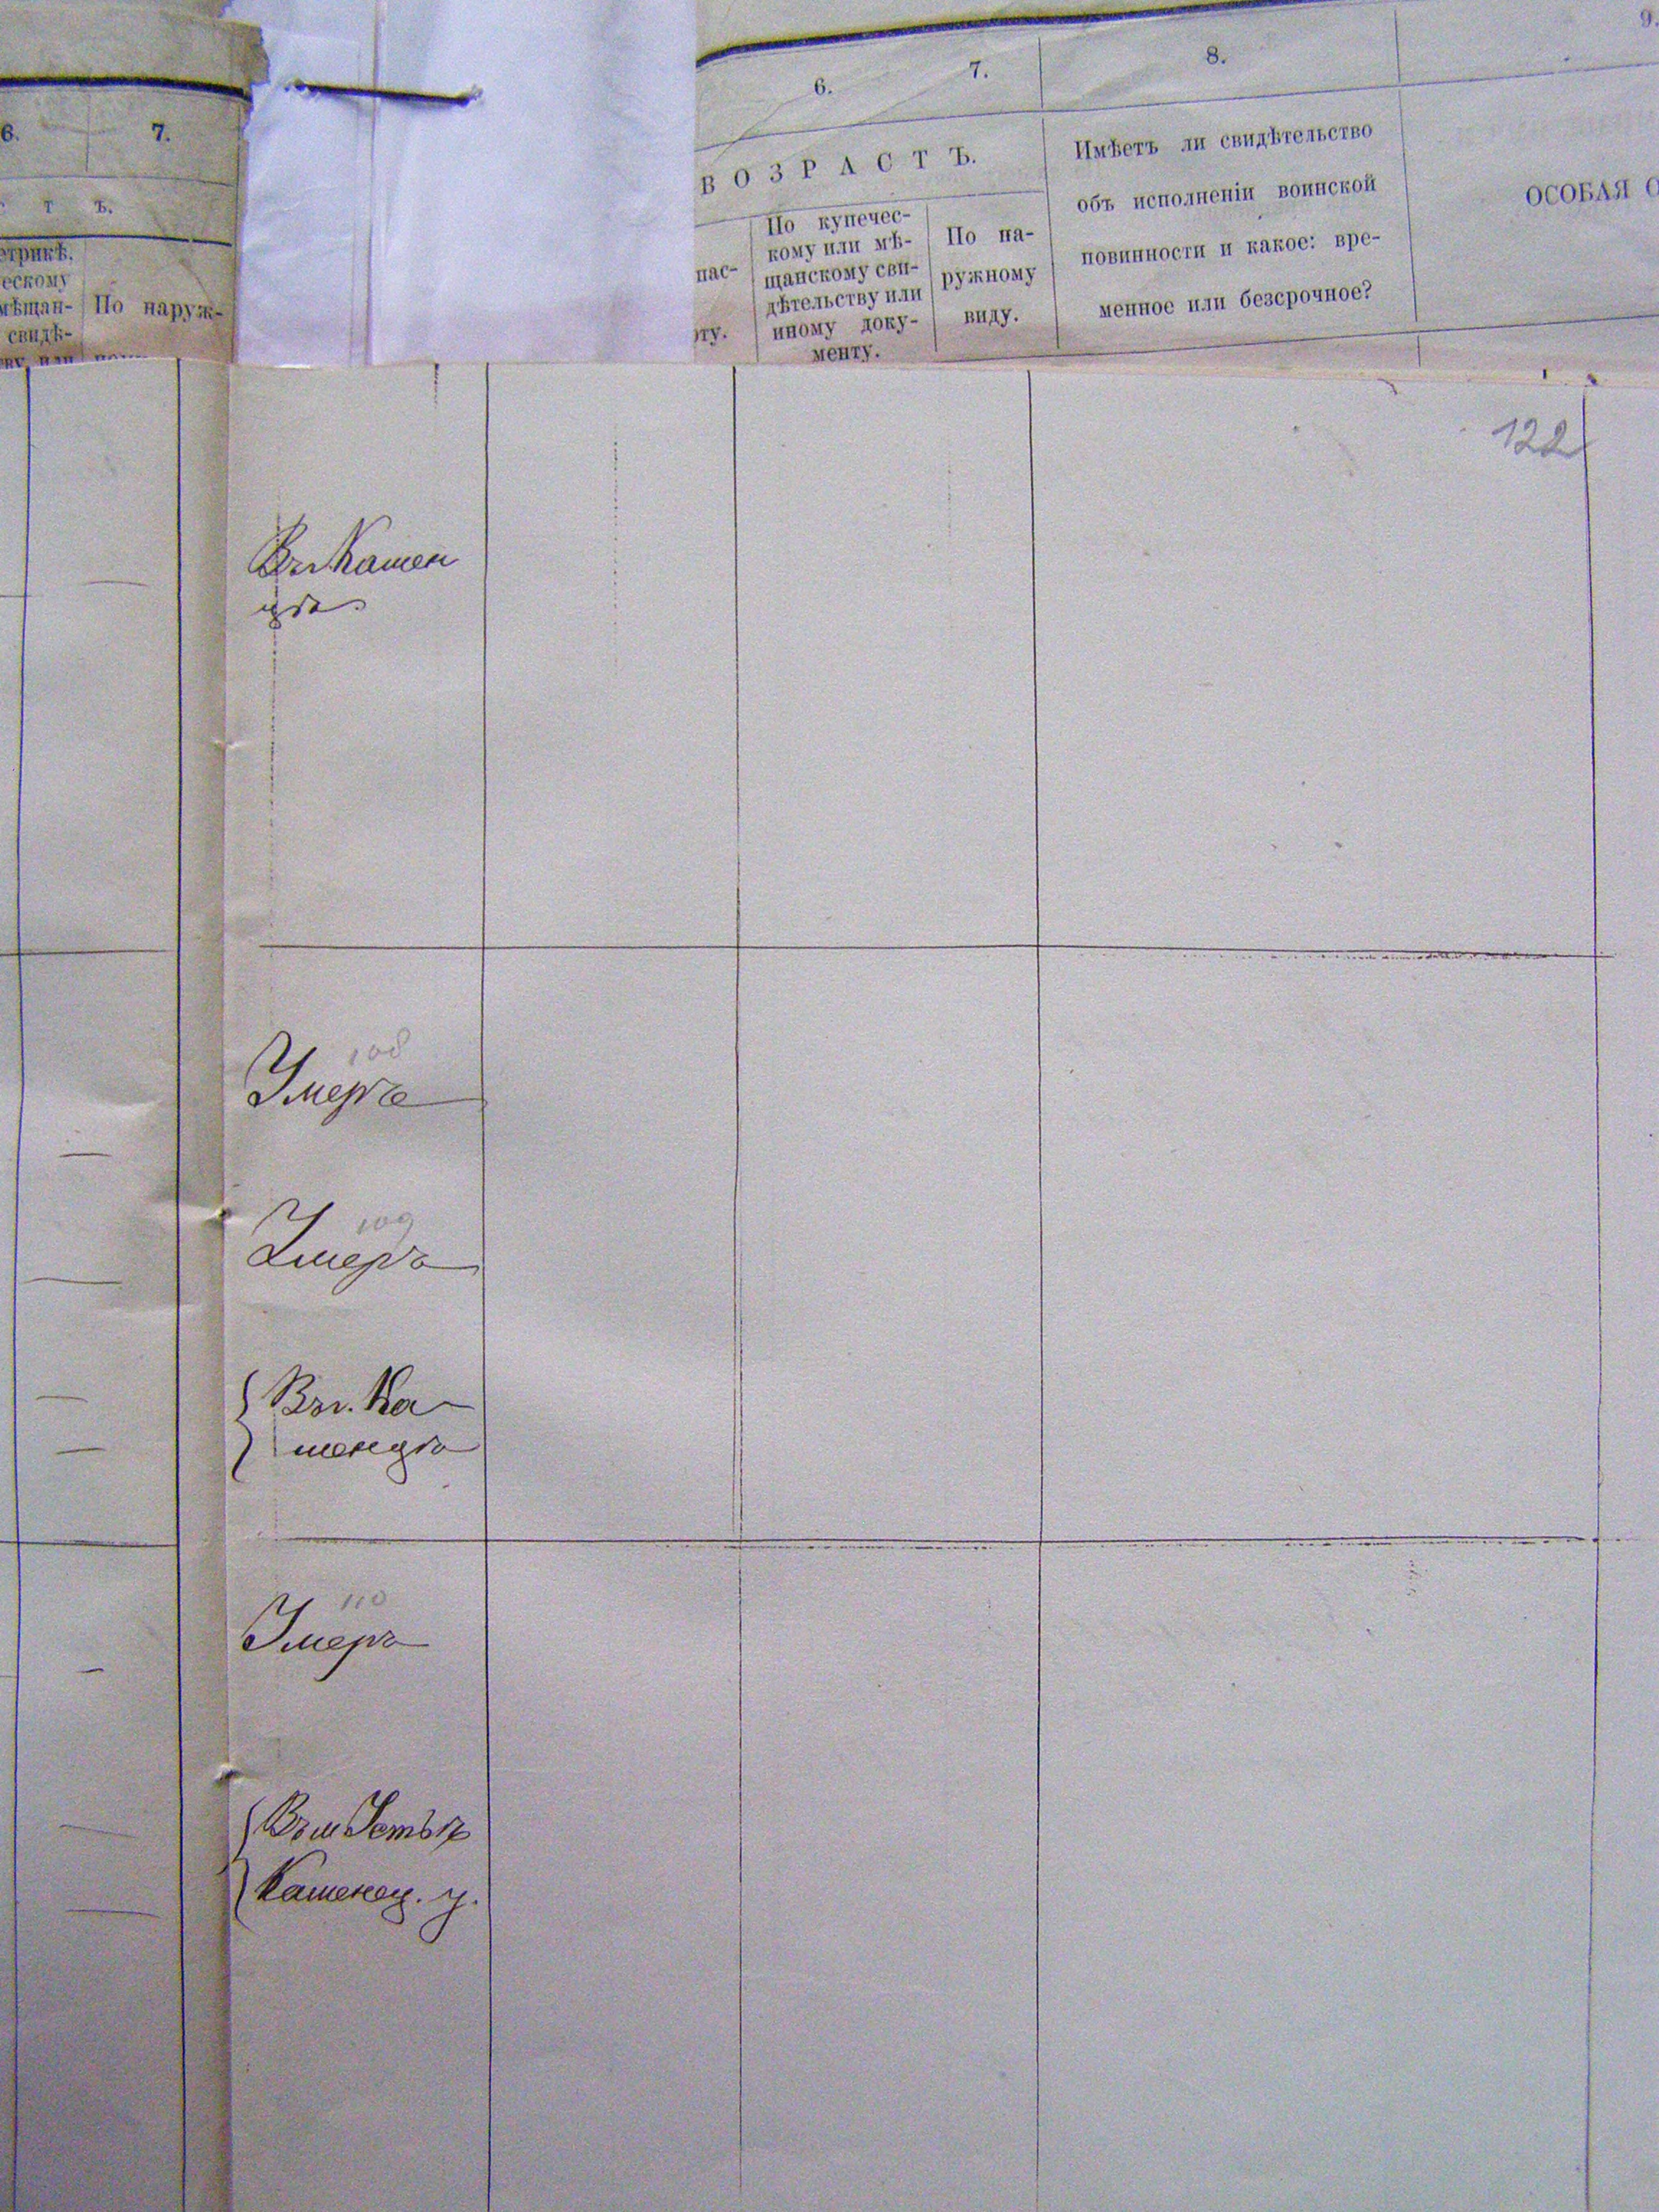 6. 7.
т ъ.
етрикѣ,
ескому
мѣщан-
свидѣ-
По наруж-
6. 7. 8. 9.
ВОЗРАСТЪ.
пас-
рту.
По купечес-
кому или мѣ-
щанскому сви-
дѣтельству или
иному доку-
менту.
По на-
ружному
виду.
Имѣетъ ли свидѣтельство
объ исполненіи воинской
повинности и какое: вре-
менное или безсрочное?
ОСОБАЯ О
122
Въ Камен
цѣ
108
Умеръ
109
Умеръ
Въ г. Ка
менцѣ
110
Умеръ
Въ м
Каменец. у.